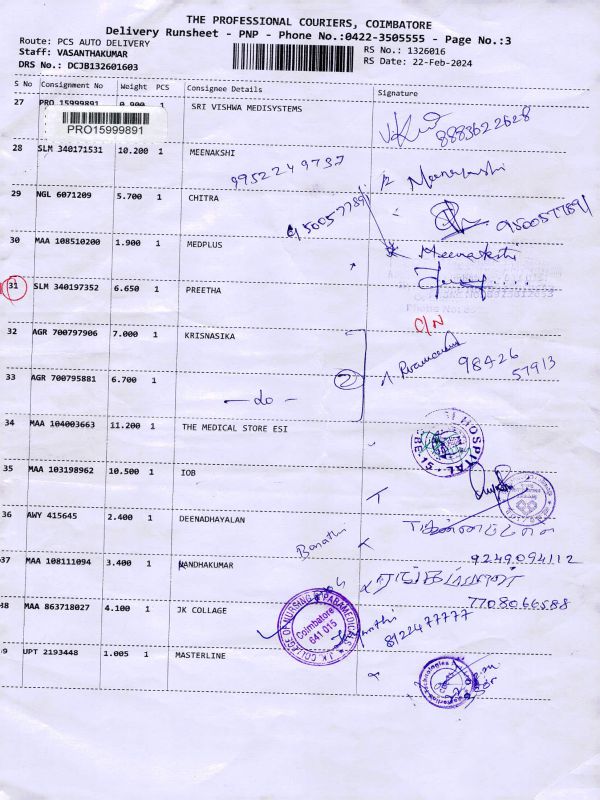 THE PROFESSIONAL COURIERS, COIMBATORE
Delivery Runsheet - PNP - Phone No.:0422-3505555 - Page No.:3
Route: PCS AUTO DELIVERY
RS No.: 1326016
Staff: VASANTHAKUMAR
RS Date: 22-Feb-2024
DRS No.: DCJB132601603
S No Consignment No Weight PCS Consignee Details Signature
27 PRO 15999891 0.900 1 SRI VISHWA MEDISYSTEMS
PRO15999891
8883622628
28 SLM 340171531 10.200 1 MEENAKSHI
9952249737
29 NGL 6071209 5.700 1 CHITRA
9500577891
9500577891
30 MAA 108510200 1.900 1 MEDPLUS
Meenakshi
31 SLM 340197352 6.650 1 PREETHA
C/N
32 AGR 700797906 7.000 1 KRISNASIKA
2
98426
57913
33 AGR 700795881 6.700 1
- do -
34 MAA 104003663 11.200 1 THE MEDICAL STORE ESI
HOSPITAL
35 MAA 103198962 10.500 1 IOB
36 AWY 415645 2.400 1 DEENADHAYALAN
9249094112
37 MAA 108111094 3.400 1 NANDHAKUMAR
7708066588
38 MAA 863718027 4.100 1 JK COLLAGE
J.K. COLLEGE OF NURSING & PARAMEDICALS
Coimbatore
641 015
8122477777
39 UPT 2193448 1.005 1 MASTERLINE